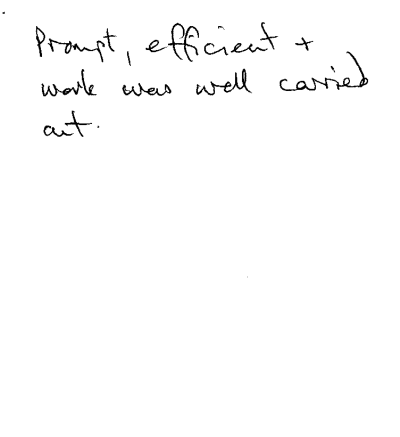 Prompt, efficient +
work was well carried
out.